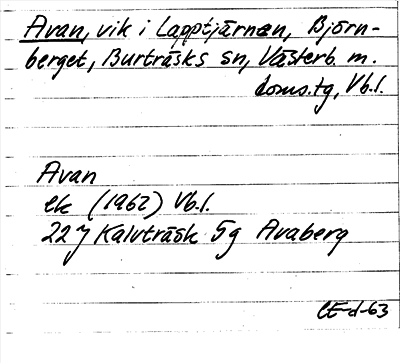 Avan, vik i Lapptjärnen, Björn-
berget, Burträsks sn, Västerb. m.
doms.tg, Vb.l.
Avan
ek (1962) Vb.l.
22J Kalvträsk 5g Avaberg
CE-d-63